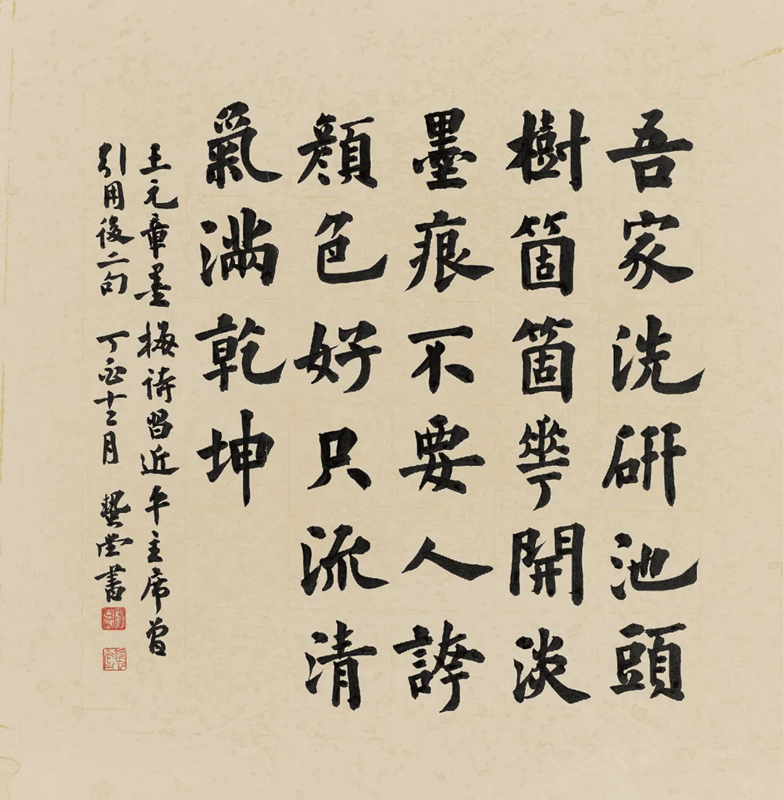 吾家洗研池頭
樹箇箇華開淡
墨痕不要人誇
顏色好只流清
氣滿乾坤
王元章墨梅詩習近平主席曾
引用後二句 丁酉十二月 堂書